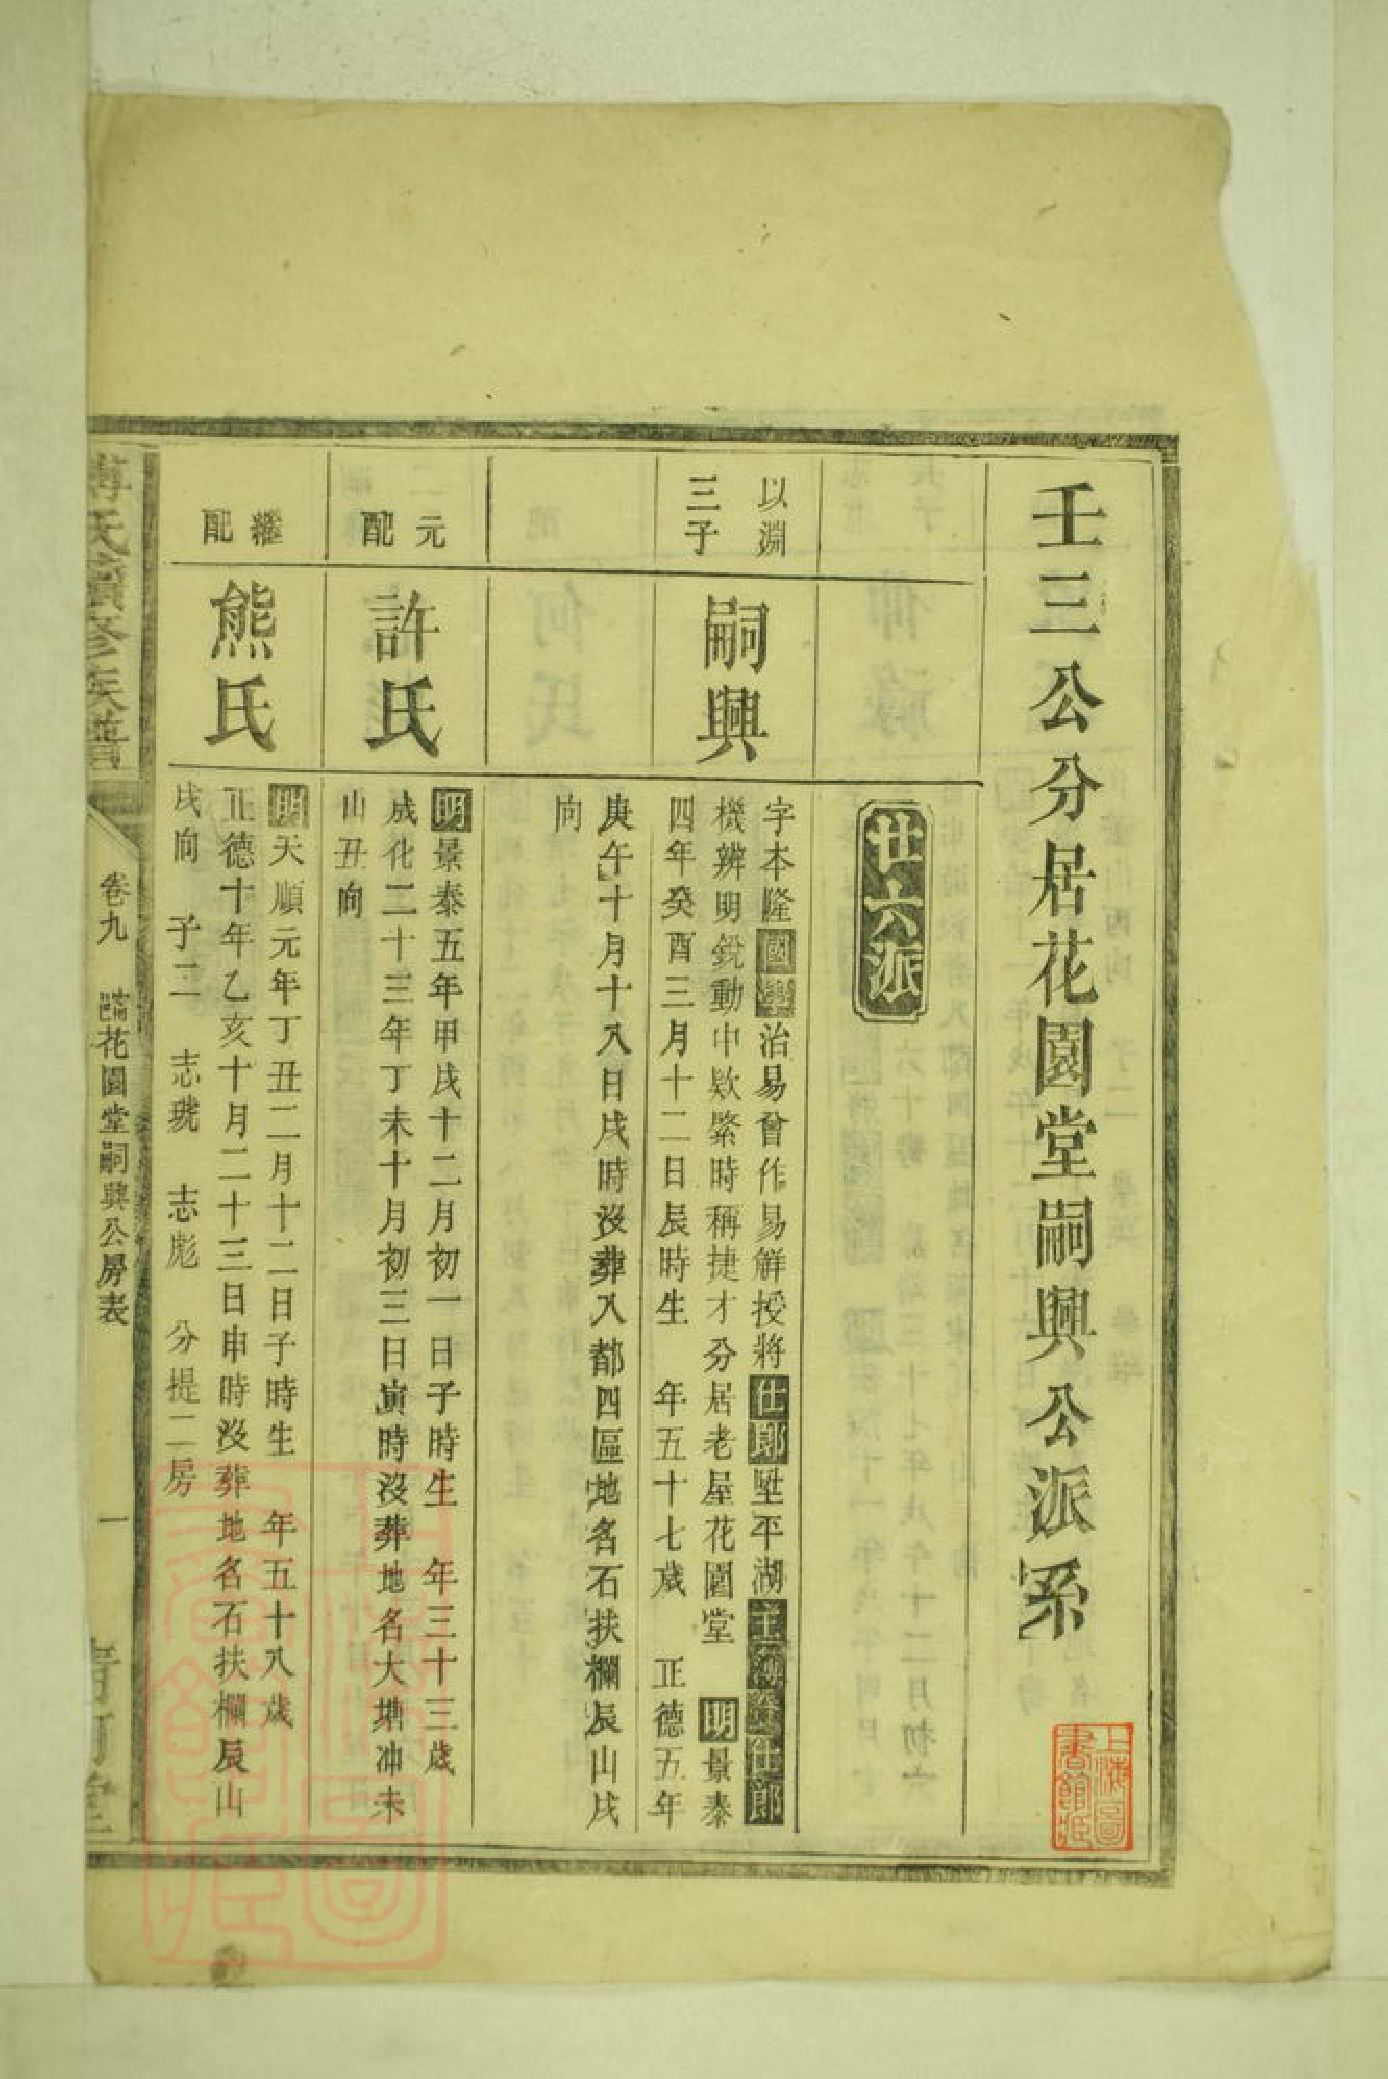 壬三公分居花園堂嗣興公派系
廿六派
以淵
三子
嗣興
字本隆國學治易曾作易解授將仕郎陞平湖主簿登仕郎
機辨明銳動中欵綮時稱捷才分居老屋花園堂 明景泰
四年癸酉三月十二日辰時生 年五十七歲 正德五年
庚午十月十八日戌時沒葬八都四區地名石扶欄辰山戌
向
元
配
許氏
明景泰五年甲戌十二月初一日子時生 年三十三歲
成化二十三年丁未十月初三日寅時沒葬地名大塘冲未
山丑向
繼
配
熊氏
明天順元年丁丑二月十二日子時生 年五十八歲
正德十年乙亥十月二十三日申時沒葬地名石扶欄辰山
戌向 子二 志琥 志彪 分提二房
氏續修族譜
卷九
花園堂嗣興公房表
一
上海圖書館藏